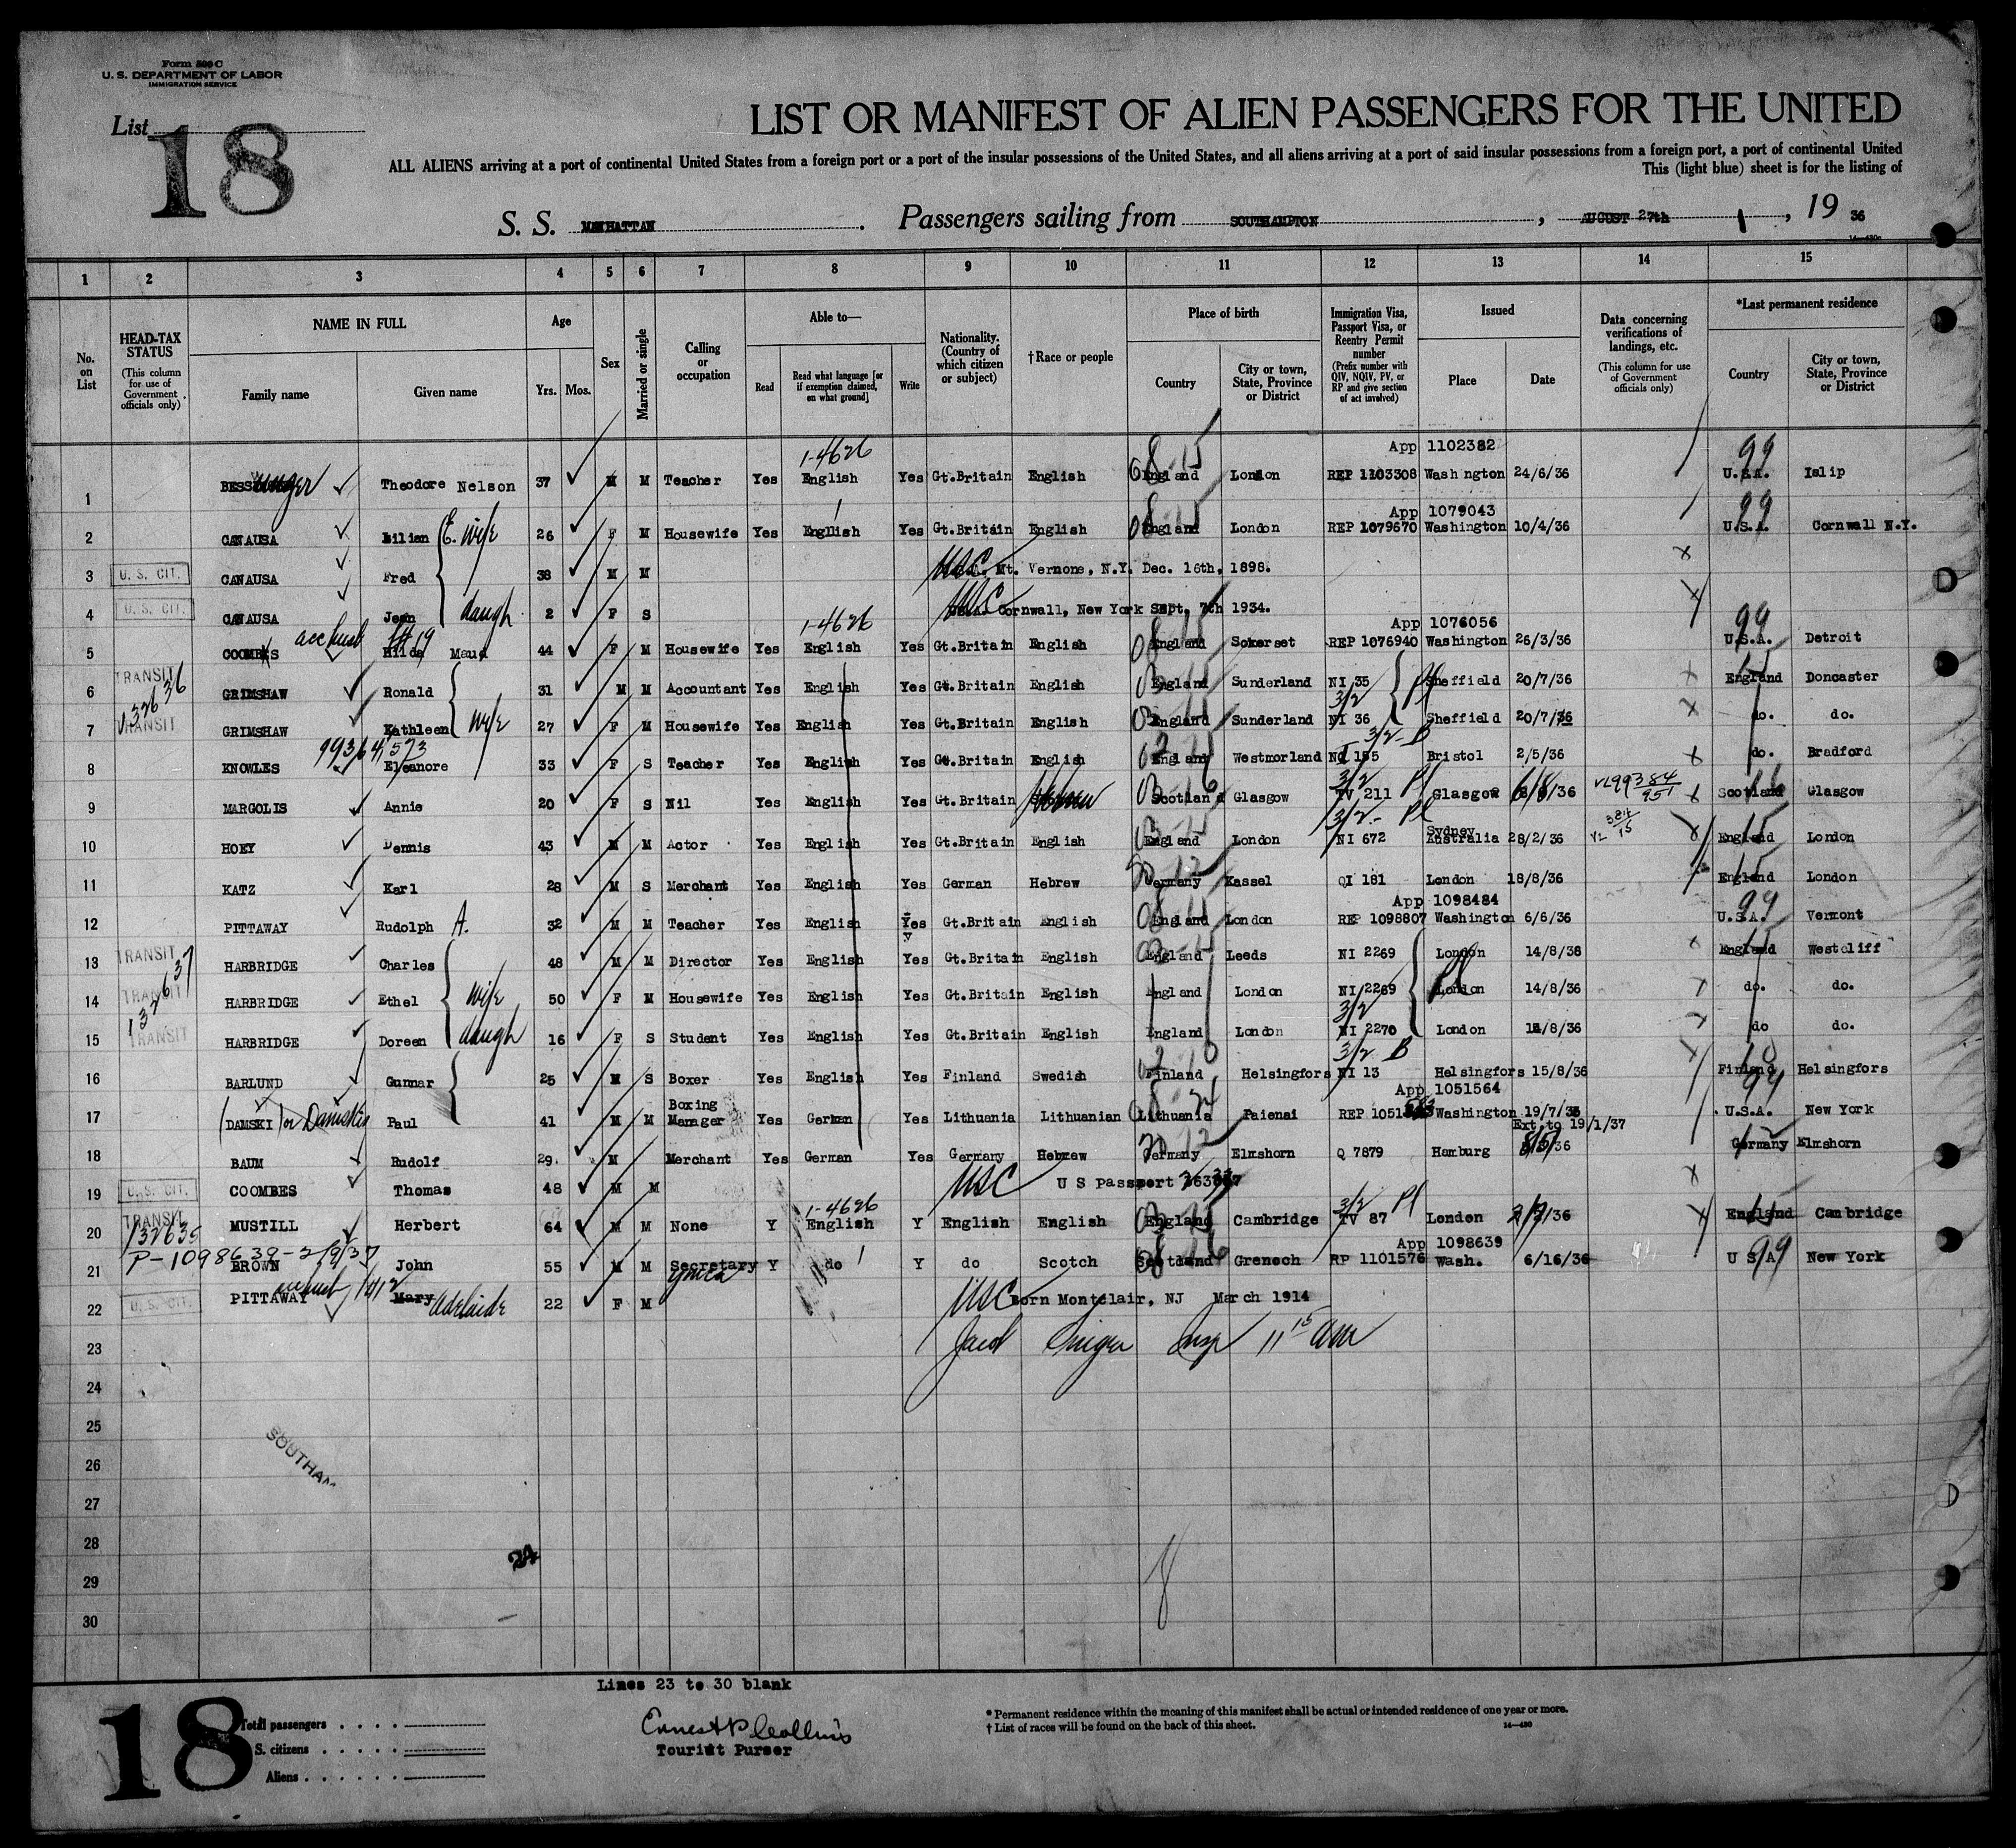 Form 500 C
U. S. DEPARTMENT OF LABOR
IMMIGRATION SERVICE
List 18
LIST OR MANIFEST OF ALIEN PASSENGERS FOR THE UNITED
ALL ALIENS arriving at a port of continental United States from a foreign port or a port of the insular possessions of the United States, and all aliens arriving at a port of said insular possessions from a foreign port, a port of continental United
This (light blue) sheet is for the listing of
S. S. MANHATTAN. Passengers sailing from SOUTHAMPTON, AUGUST 27th, 19 36
1 2 3 4 5 6 7 8 9 10 11 12 13 14 15
No. on List
HEAD-TAX STATUS (This column for use of Government officials only)
NAME IN FULL Family name Given name
Age Yrs. Mos.
Sex
Married or single
Calling or occupation
Able to— Read Read what language [or if exemption claimed, on what ground] Write
Nationality. (Country of which citizen or subject)
†Race or people
Place of birth Country City or town, State, Province or District
Immigration Visa, Passport Visa, or Reentry Permit number (Prefix number with QIV, NQIV, PV, or RP and give section of act involved)
Issued Place Date
Data concerning verifications of landings, etc. (This column for use of Government officials only)
*Last permanent residence Country City or town, State, Province or District
1-4626 App 1102382 99
1 Theodore Nelson 37 M M Teacher Yes English Yes Gt.Britain English England London REP 1103308 Washington 24/6/36 U.S.A. Islip
App 1079043 99
2 CANAUSA Lilian E. wife 26 F M Housewife Yes English Yes Gt.Britain English England London REP 1079670 Washington 10/4/36 U.S.A. Cornwall N.Y.
3 U. S. CIT. CANAUSA Fred 38 M M USC Mt. Vernone, N.Y. Dec. 16th, 1898.
4 U. S. CIT. CANAUSA Jean daugh 2 F S USC Cornwall, New York Sept. 7th 1934.
1-4626 App 1076056 99
5 COOMBES Hilda Maud 44 F M Housewife Yes English Yes Gt.Britain English England Somerset REP 1076940 Washington 26/3/36 U.S.A. Detroit
6 TRANSIT GRIMSHAW Ronald 31 M M Accountant Yes English Yes Gt.Britain English England Sunderland NI 35 Sheffield 20/7/36 England Doncaster
132636 3/2
7 TRANSIT GRIMSHAW Kathleen wife 27 F M Housewife Yes English Yes Gt.Britain English England Sunderland NI 36 Sheffield 20/7/36 do. do.
3/2 - B
8 KNOWLES Eleanore 33 F S Teacher Yes English Yes Gt.Britain English England Westmorland 155 Bristol 2/5/36 do. Bradford
3/2 Pl
9 MARGOLIS Annie 20 F S Nil Yes English Yes Gt.Britain Hebrew Scotland Glasgow TV 211 Glasgow /36 Scotland Glasgow
3/2 - Pl
10 HOEY Dennis 43 M M Actor Yes English Yes Gt.Britain English England London NI 672 Sydney Australia 28/2/36 England London
11 KATZ Karl 28 M S Merchant Yes English Yes German Hebrew Germany Kassel QI 181 London 18/8/36 England London
App 1098484 99
12 PITTAWAY Rudolph A. 32 M M Teacher Yes English Yes Gt.Britain English England London REP 1098807 Washington 6/6/36 U.S.A. Vermont
13 TRANSIT HARBRIDGE Charles 48 M M Director Yes English Yes Gt.Britain English England Leeds NI 2269 London 14/8/36 England Westcliff
132637
14 TRANSIT HARBRIDGE Ethel wife 50 F M Housewife Yes English Yes Gt.Britain English England London NI 2269 London 14/8/36 do. do.
3/2
15 TRANSIT HARBRIDGE Doreen daugh 16 F S Student Yes English Yes Gt.Britain English England London NI 2270 London 14/8/36 do do.
3/2 B
16 BARLUND Gunnar 25 M S Boxer Yes English Yes Finland Swedish Finland Helsingfors NI 13 Helsingfors 15/8/36 Finland Helsingfors
App 1051564
17 DAMSKI or Damskis Paul 41 M M Boxing Manager Yes German Yes Lithuania Lithuanian Lithuania Paienai REP Washington 19/7/35 U.S.A. New York
Ext. to 19/1/37
18 BAUM Rudolf 29 M Merchant Yes German Yes Germany Hebrew Germany Elmshorn Q 7879 Hamburg /36 Germany Elmshorn
19 U. S. CIT. COOMBES Thomas 48 M M USC U S Passport
1-4626 3/2 Pl
20 TRANSIT 132635 MUSTILL Herbert 64 M M None Y English Y English English England Cambridge TV 87 London /36 England Cambridge
P-1098639 App 1098639
21 BROWN John 55 M M Secretary ymca Y do Y do Scotch Scotland Grenoch RP 1101576 Wash. 6/16/36 U S A New York
22 U. S. CIT. PITTAWAY Mary Adelaide 22 F M USC Born Montclair, NJ March 1914
23 Insp 11 15 am
24
25
26
SOUTHAM
27
28
29
30
Lines 23 to 30 blank
18
Total passengers
S. citizens
Aliens
Ernest P Collins
Tourist Purser
* Permanent residence within the meaning of this manifest shall be actual or intended residence of one year or more.
† List of races will be found on the back of this sheet.
14—430